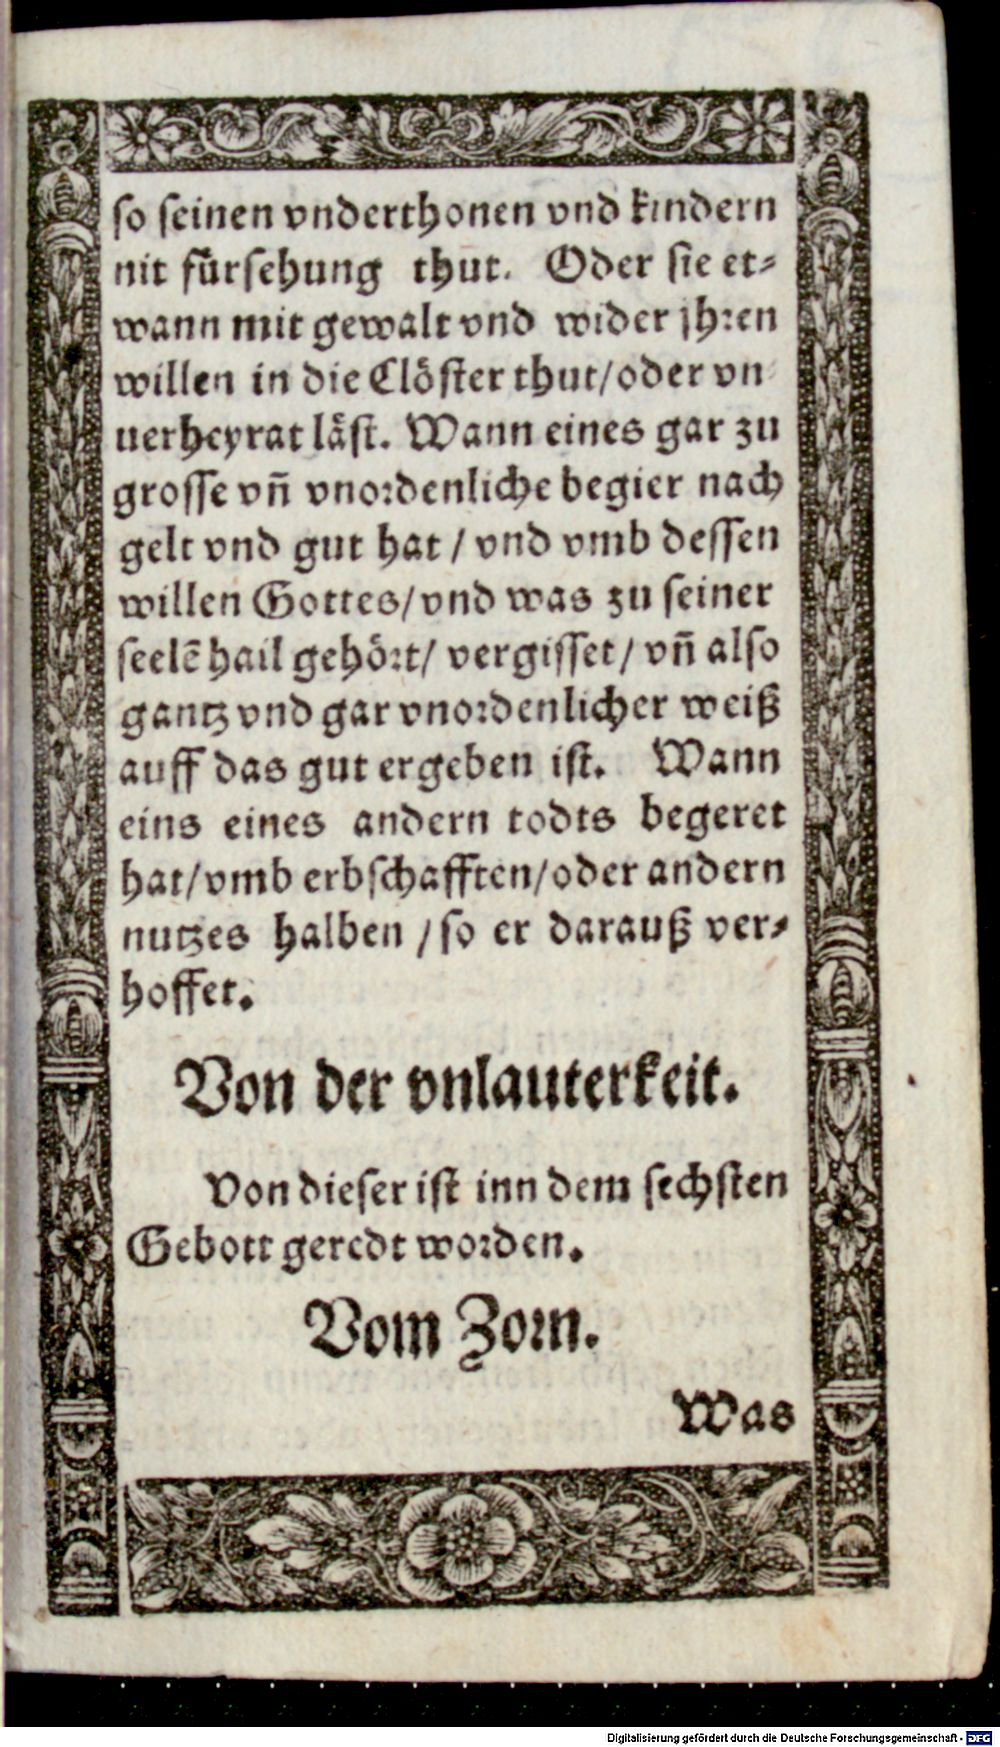 so seinen vnderthonen vnd kindern
nit fürsehung thut. Oder sie et-
wann mit gewalt vnd wider jhren
willen in die Clöster thut/oder vn
uerheyrat läst. Wann eines gar zu
grosse vn̄ vnordenliche begier nach
gelt vnd gut hat / vnd vmb dessen
willen Gottes/vnd was zu seiner
seelē hail gehört/ vergisset/ vn̄ also
gantz vnd gar vnordenlicher weiß
auff das gut ergeben ist. Wann
eins eines andern todts begeret
hat/vmb erbschafften/oder andern
nutzes halben / so er darauß ver-
hoffet.
Von der vnlauterkeit.
Von dieser ist inn dem sechsten
Gebott geredt worden.
Vom Zorn.
Was
Digitalisierung gefördert durch die Deutsche Forschungsgemeinschaft - DFG